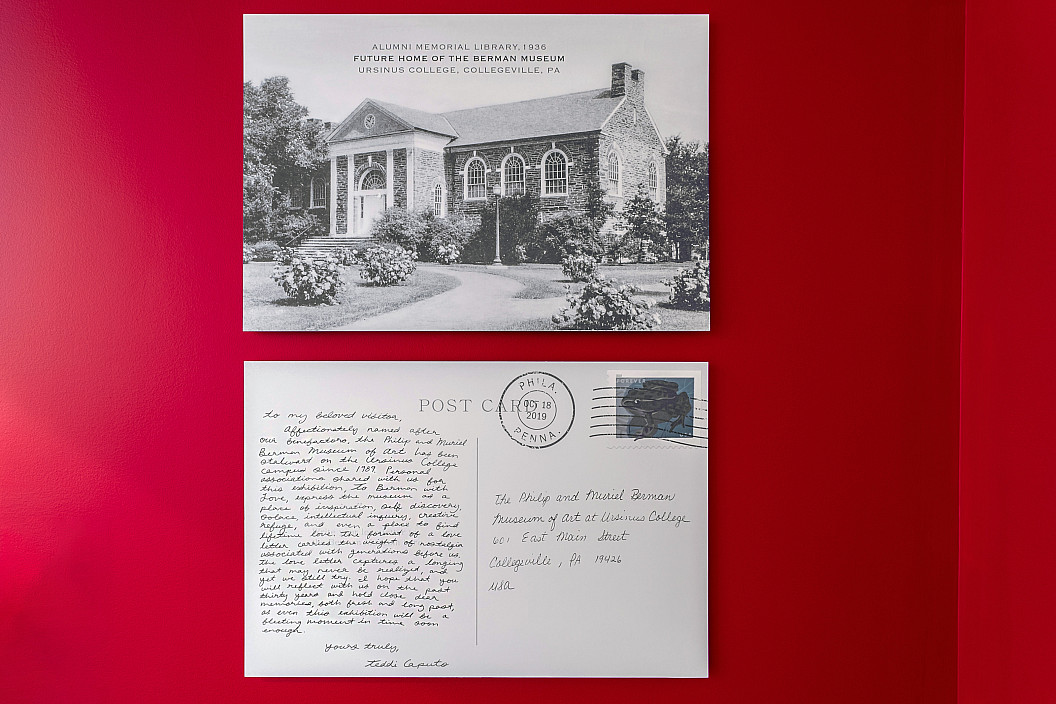 ALUMNI MEMORIAL LIBRARY, 1936
FUTURE HOME OF THE BERMAN MUSEUM
URSINUS COLLEGE, COLLEGEVILLE, PA
POST CARD
PHILA.
OCT 18
2019
PENNA.
FOREVER
To my beloved visitor,
Affectionately named after
our benefactors, the Philip and Muriel
Berman Museum of Art has been
stalwart on the Ursinus College
campus since 1989. Personal
associations shared with us for
this exhibition, To Berman with
Love, express the museum as a
place of inspiration, self discovery,
solace, intellectual inquiry, creative
refuge, and even a place to find
lifetime love. The format of a love
letter carries the weight of nostalgia
associated with generations before us.
The love letter captures a longing
that may never be realized, and
yet we still try. I hope that you
will reflect with us on the past
thirty years and hold close dear
memories, both fresh and long past,
as even this exhibition will be a
fleeting moment in time soon
enough.
Yours truly,
Teddi Caputo
The Philip and Muriel Berman
Museum of Art at Ursinus College
601 East Main Street
Collegeville, PA 19426
USA